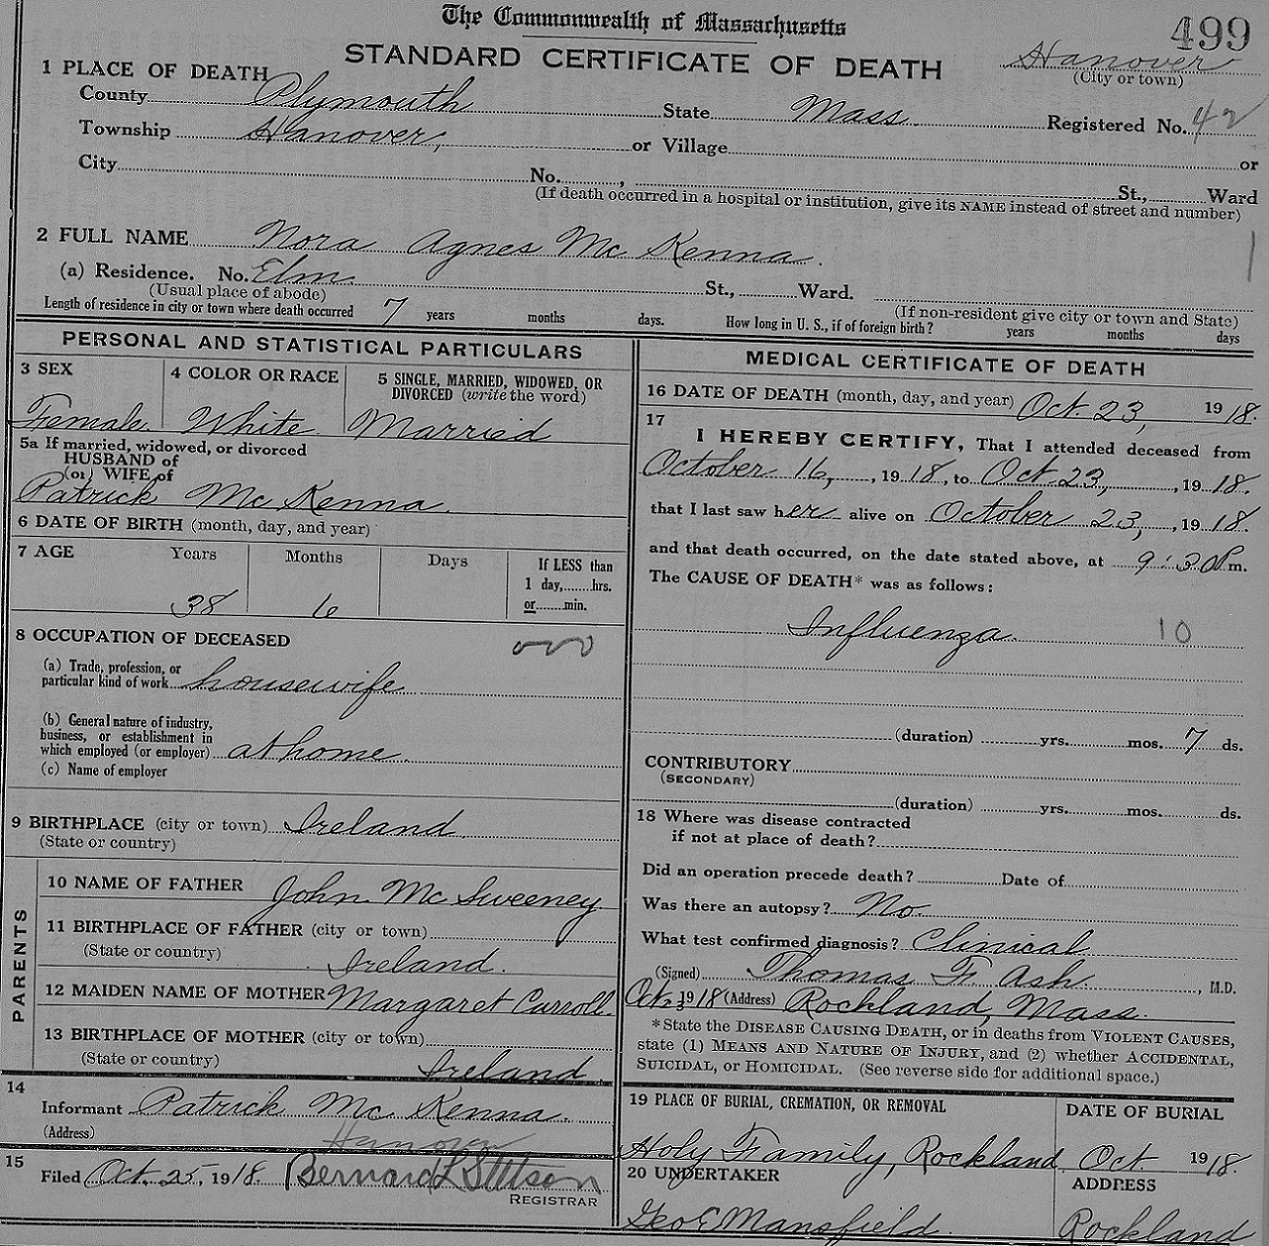 The Commonwealth of Massachusetts
499
STANDARD CERTIFICATE OF DEATH
Hanover
(City or town)
1 PLACE OF DEATH
County Plymouth State Mass. Registered No. 42
Township Hanover, or Village or
City No. , St., Ward
(If death occurred in a hospital or institution, give its NAME instead of street and number)
2 FULL NAME Nora Agnes Mc Kenna.
(a) Residence. No. Elm. St., Ward.
(Usual place of abode) (If non-resident give city or town and State)
Length of residence in city or town where death occurred 7 years months days. How long in U. S., if of foreign birth? years months days
PERSONAL AND STATISTICAL PARTICULARS
3 SEX 4 COLOR OR RACE 5 SINGLE, MARRIED, WIDOWED, OR
DIVORCED (write the word)
Female. White. Married
5a If married, widowed, or divorced
HUSBAND of
(or) WIFE of
Patrick Mc Kenna.
6 DATE OF BIRTH (month, day, and year)
7 AGE Years Months Days If LESS than
1 day, hrs.
or min.
38 6
8 OCCUPATION OF DECEASED
000
(a) Trade, profession, or
particular kind of work housewife
(b) General nature of industry,
business, or establishment in
which employed (or employer) at home.
(c) Name of employer
9 BIRTHPLACE (city or town) Ireland
(State or country)
PARENTS
10 NAME OF FATHER John Mc Sweeney
11 BIRTHPLACE OF FATHER (city or town)
(State or country) Ireland.
12 MAIDEN NAME OF MOTHER Margaret Carroll.
13 BIRTHPLACE OF MOTHER (city or town)
(State or country) Ireland
14
Informant Patrick Mc Kenna.
(Address) Hanover
15
Filed Oct. 25, 1918. Bernard L Stetson
REGISTRAR
MEDICAL CERTIFICATE OF DEATH
16 DATE OF DEATH (month, day, and year) Oct. 23, 1918.
17
I HEREBY CERTIFY, That I attended deceased from
October 16, , 1918, to Oct 23, , 1918.
that I last saw her alive on October 23, , 1918.
and that death occurred, on the date stated above, at 9:30 P m.
The CAUSE OF DEATH* was as follows:
Influenza. 10
(duration) yrs. mos. 7 ds.
CONTRIBUTORY
(SECONDARY)
(duration) yrs. mos. ds.
18 Where was disease contracted
if not at place of death?
Did an operation precede death? Date of
Was there an autopsy? No.
What test confirmed diagnosis? Clinical
(Signed) Thomas F. Ash. , M.D.
Oct. 1918 (Address) Rockland, Mass.
*State the DISEASE CAUSING DEATH, or in deaths from VIOLENT CAUSES,
state (1) MEANS AND NATURE OF INJURY, and (2) whether ACCIDENTAL,
SUICIDAL, or HOMICIDAL. (See reverse side for additional space.)
19 PLACE OF BURIAL, CREMATION, OR REMOVAL DATE OF BURIAL
Holy Family, Rockland Oct. 1918.
20 UNDERTAKER ADDRESS
Geo E Mansfield. Rockland